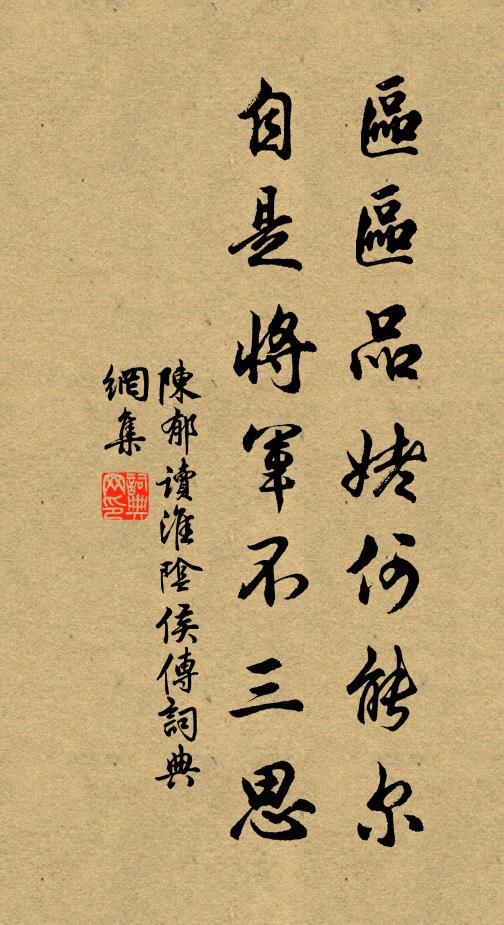 區區品姥何能尔
自是將軍不三思
陳郁讀淮陰侯傳詞典
網集
詞典
网印